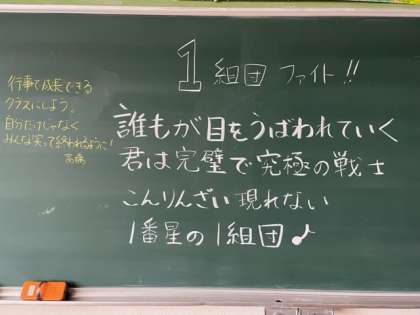 1組団 ファイト!!
行事で成長できる
クラスにしよう。
自分だけじゃなく
みんな笑って終われるように!
高橋
誰もが目をうばわれていく
君は完璧で究極の戦士
こんりんざい現れない
1番星の1組団♪